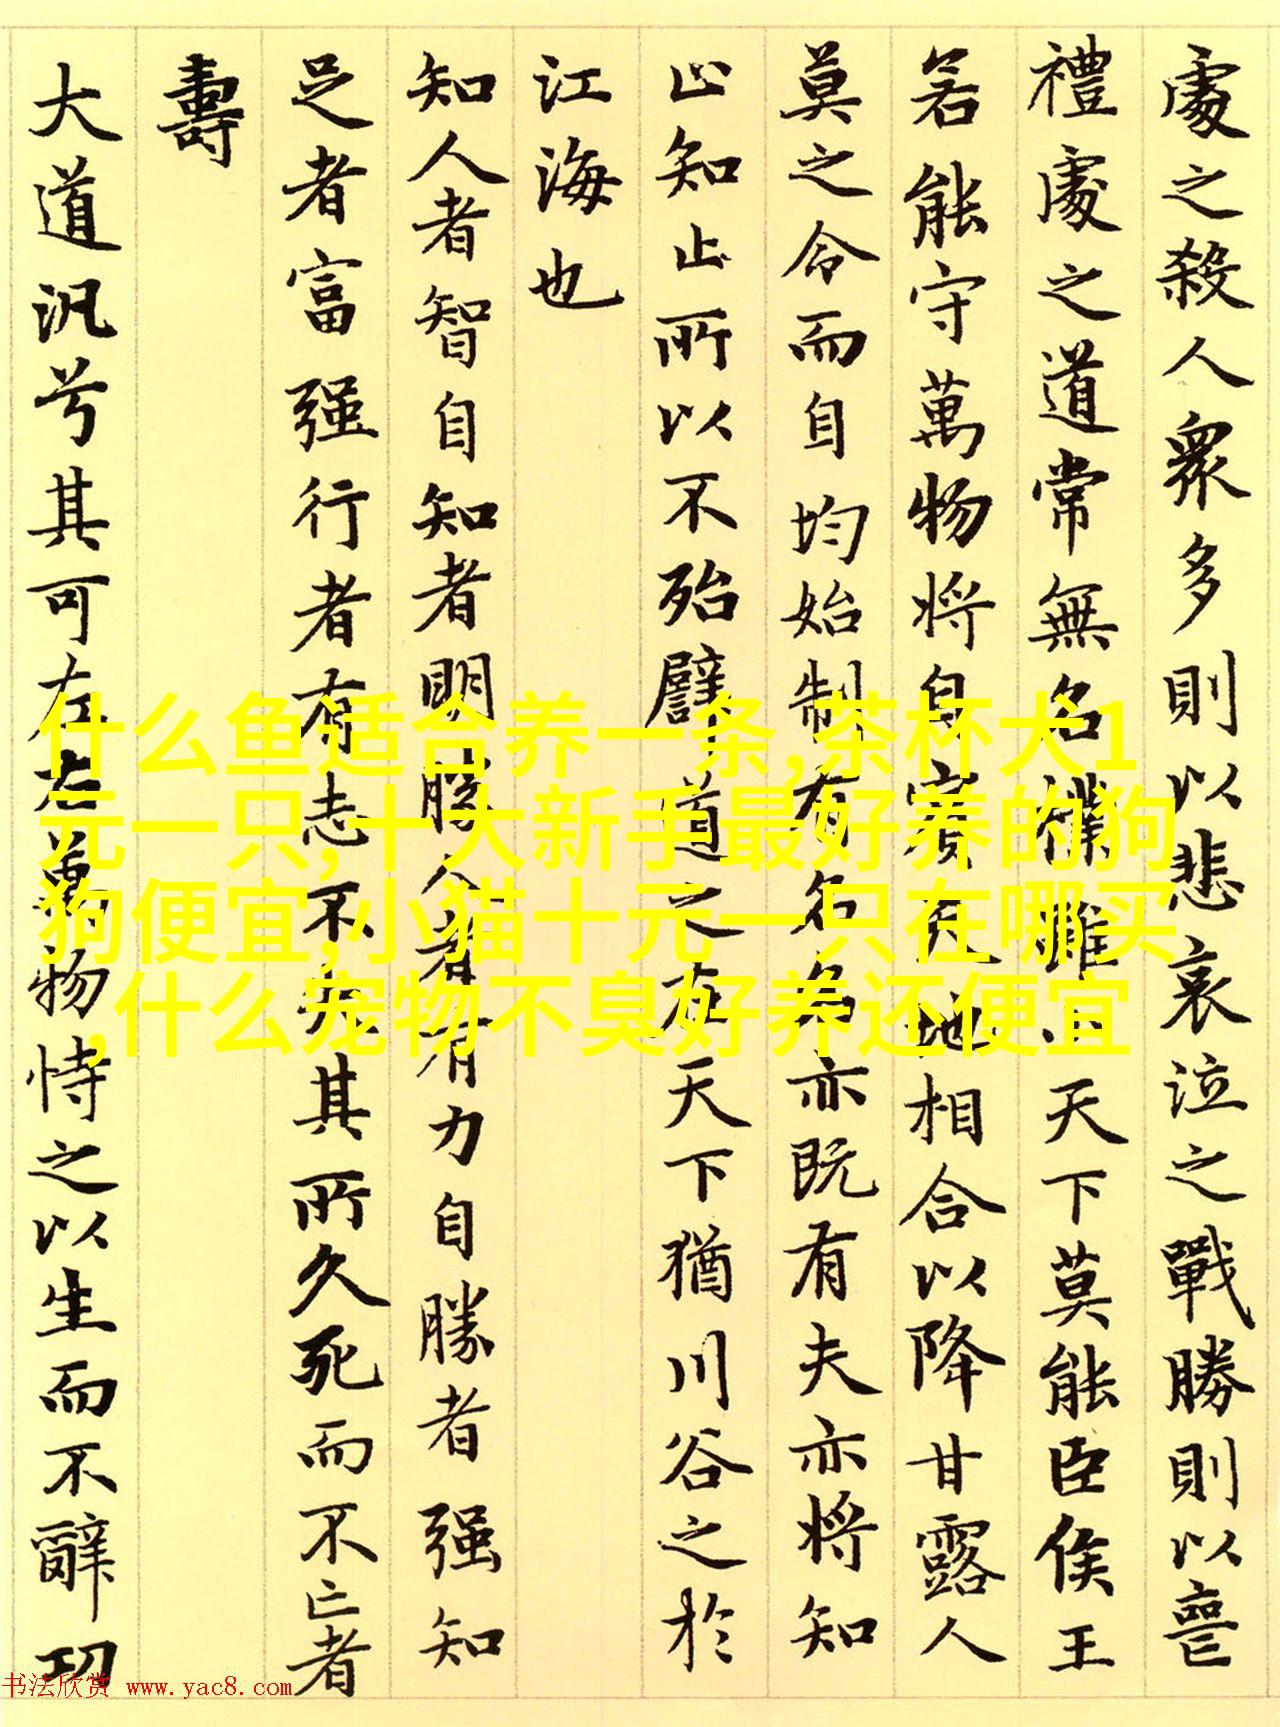 處之殺人衆多則以悲哀泣之戰勝則以喪
禮處之道常無名樸雖小天下莫能臣侯王
若能守萬物將自賓天地相合以降甘露人
莫之令而自均始制有名名亦既有夫亦將知
止知止所以不殆譬道之在天下猶川谷之於
江海也
知人者智自知者明勝人者有力自勝者强知
足者富强行者有志不失其所久死而不亡者
壽
大道汎兮其可左右萬物恃之以生而不辭功
什么鱼适合养一条,茶杯犬1
元一只,十大新手最好养的狗
狗便宜,小猫十元一只在哪买
,什么宠物不臭好养还便宜
书法欣赏 www.yac8.com